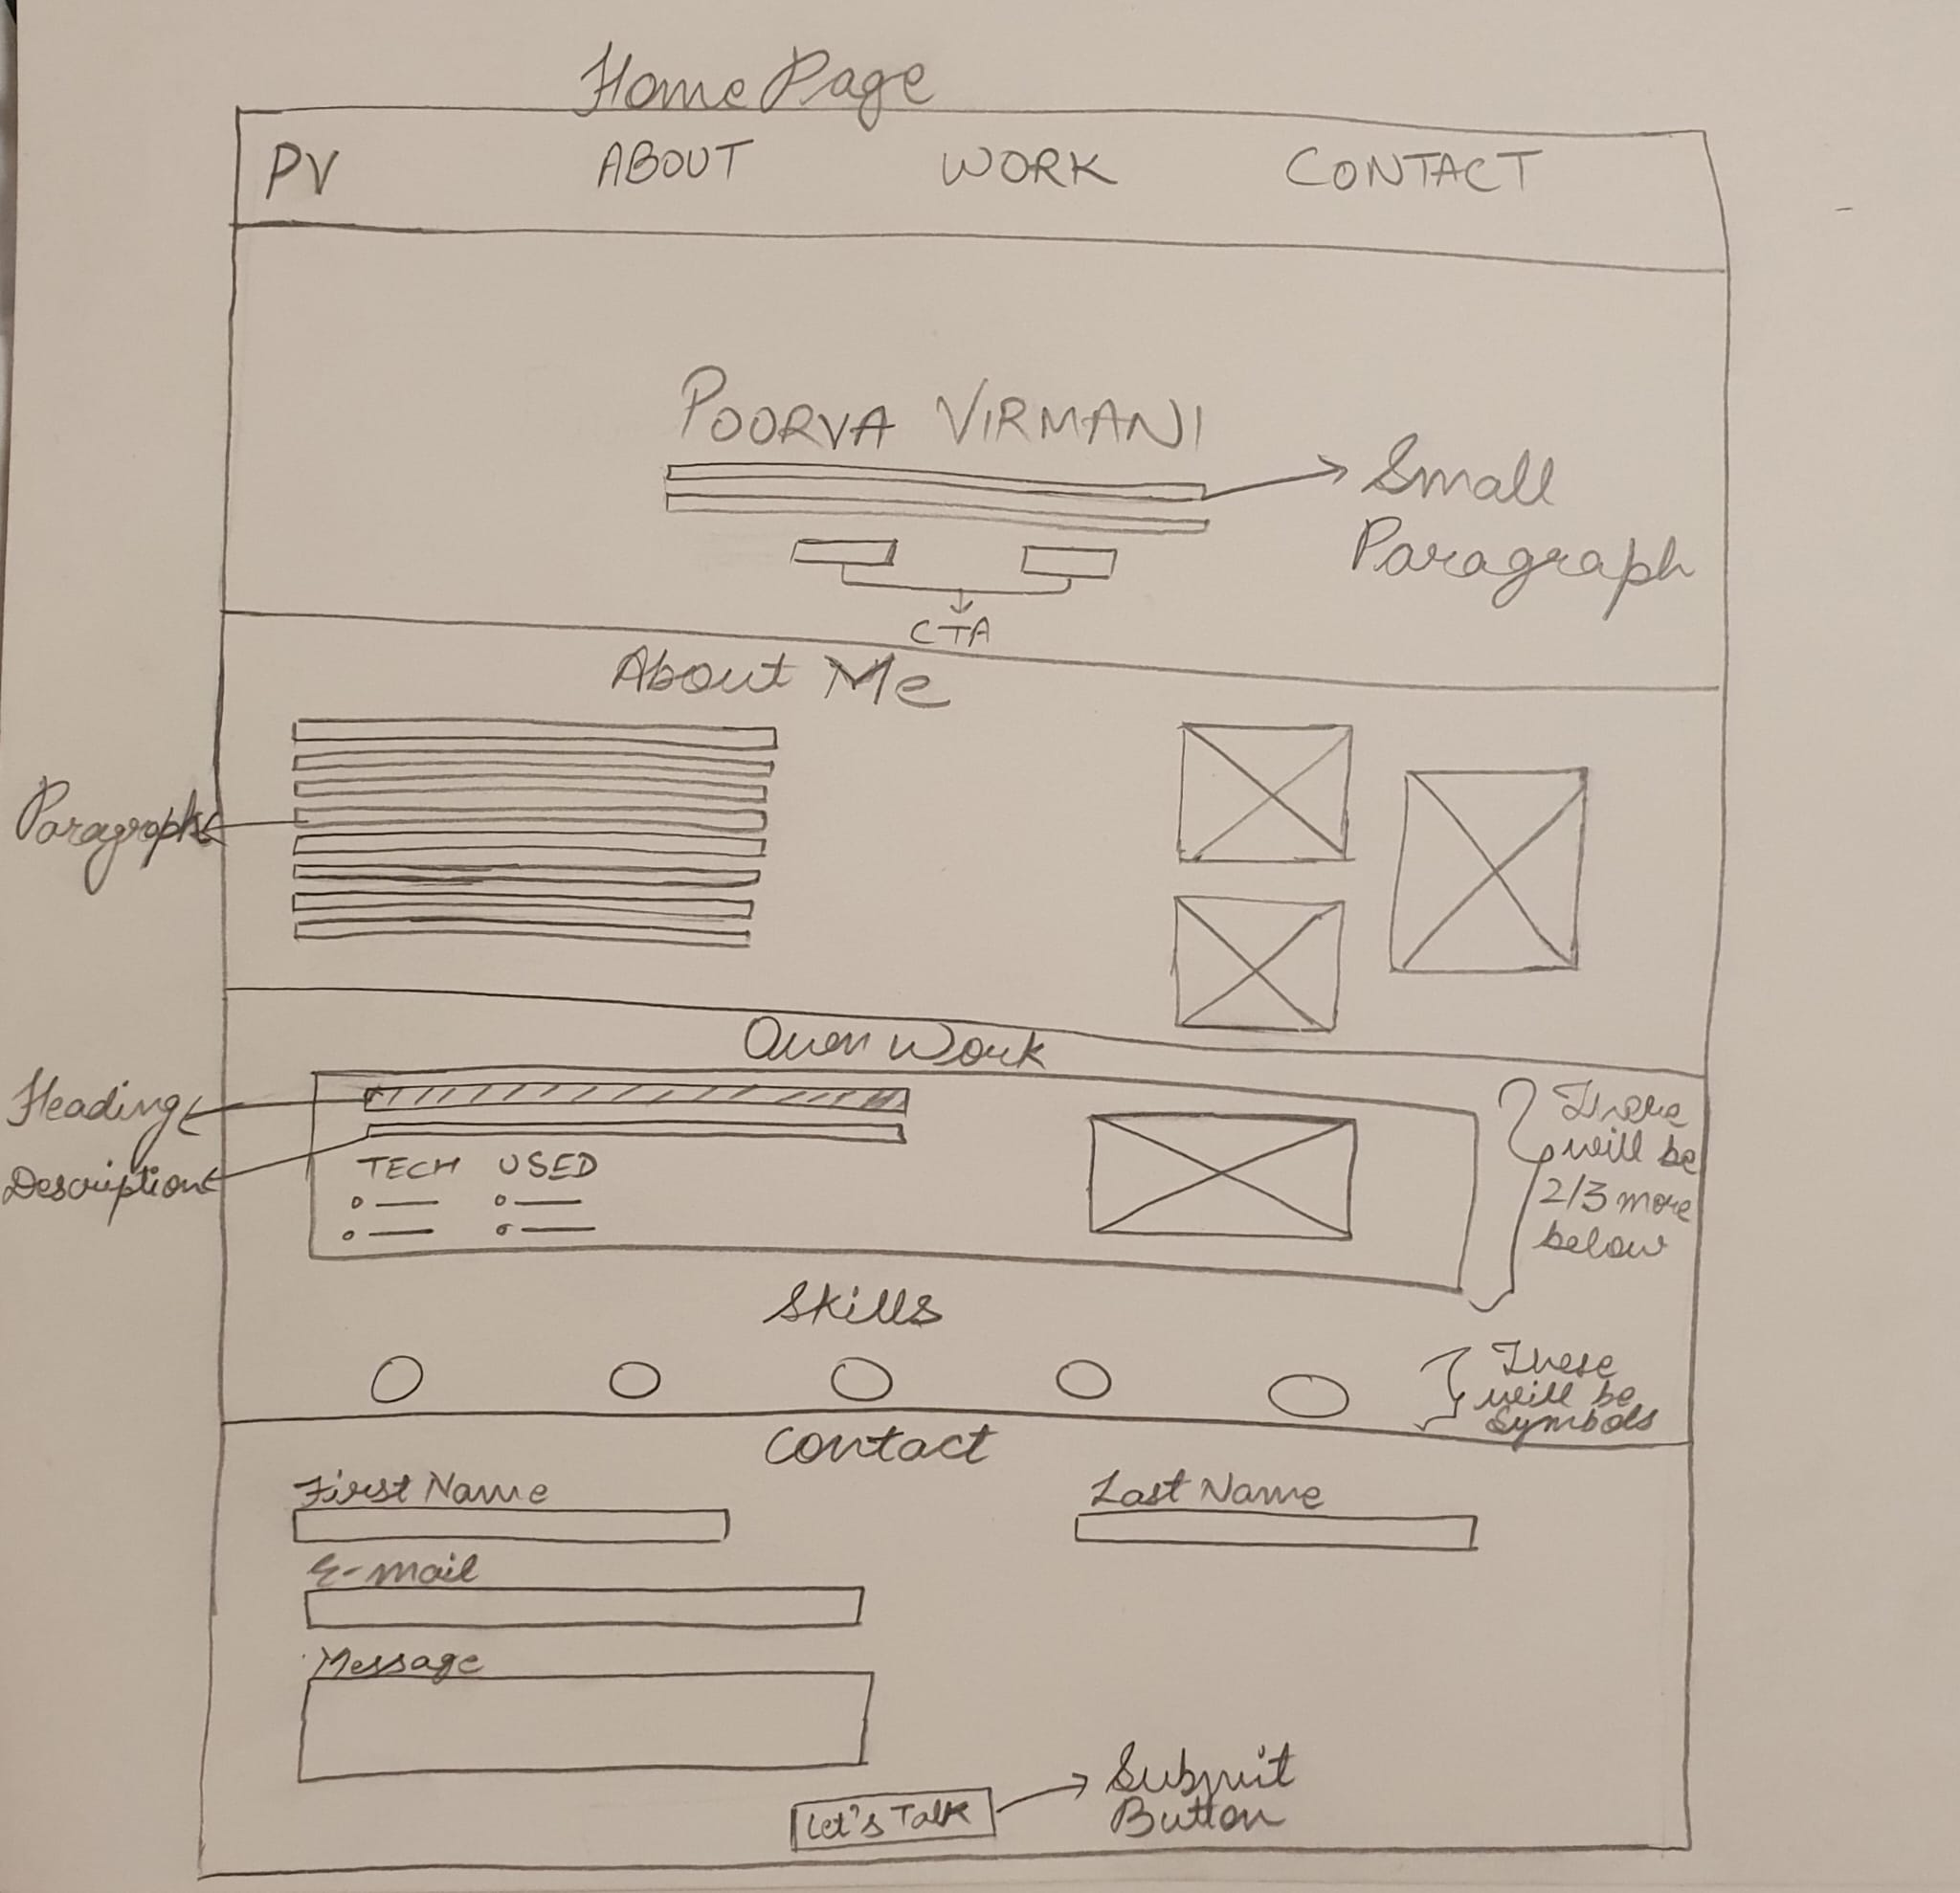 Home Page
PV ABOUT WORK CONTACT
POORVA VIRMANI
Small
Paragraph
CTA
About Me
Paragraph
Work
Heading
Description
TECH USED
There
will be
2/3 more
below
Skills
These
will be
Symbols
Contact
First Name Last Name
E-mail
Message
Let's Talk
Submit
Button